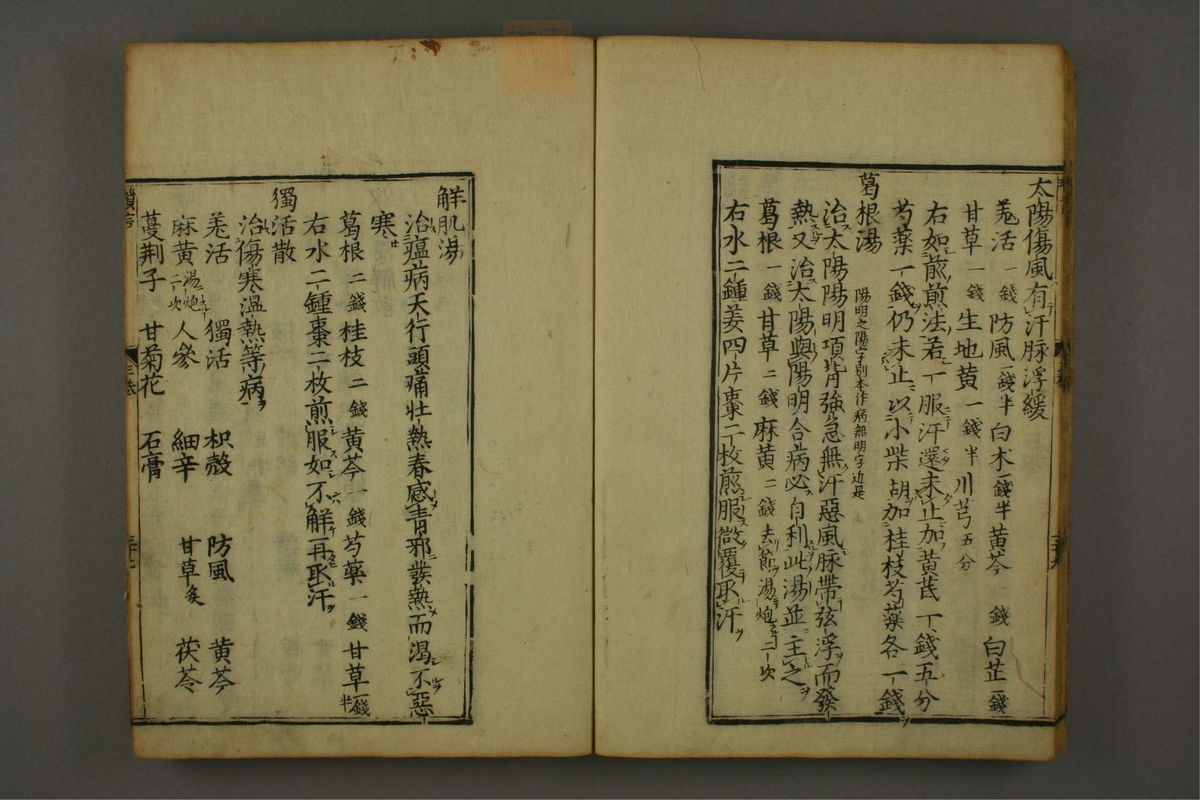 太陽傷風有汗脉浮緩
羗活一錢防風一錢半白朮一錢半黄芩一錢白芷一錢
甘草一錢生地黄一錢半川芎五分
右如煎煎法若一服汗還未止加黄茋一錢五分
芍藥一錢仍未止以小柴胡加桂枝芍藥各一錢
葛根湯陽明之陽字别本作病無明字近是
治太陽陽明項背強急無汗惡風脉帶弦浮而發
熱又治太陽與陽明合病必自利此湯並主之
葛根一錢甘草二錢麻黄二錢去節湯炮二次
右水二鍾姜四片棗二枚煎服微覆取汗
解肌湯
治瘟病天行頭痛壮熱春感青邪發熱而渴不惡
寒
葛根二錢桂枝二錢黄芩一錢芍藥一錢甘草一錢半
右水二鍾棗二枚煎服如不解再取汗
獨活散
治傷寒温熱等病
羗活 獨活 枳殻 防風 黄芩
麻黄湯炮二次 人參 細辛 甘草炙 茯苓
蔓荆子 甘菊花 石膏